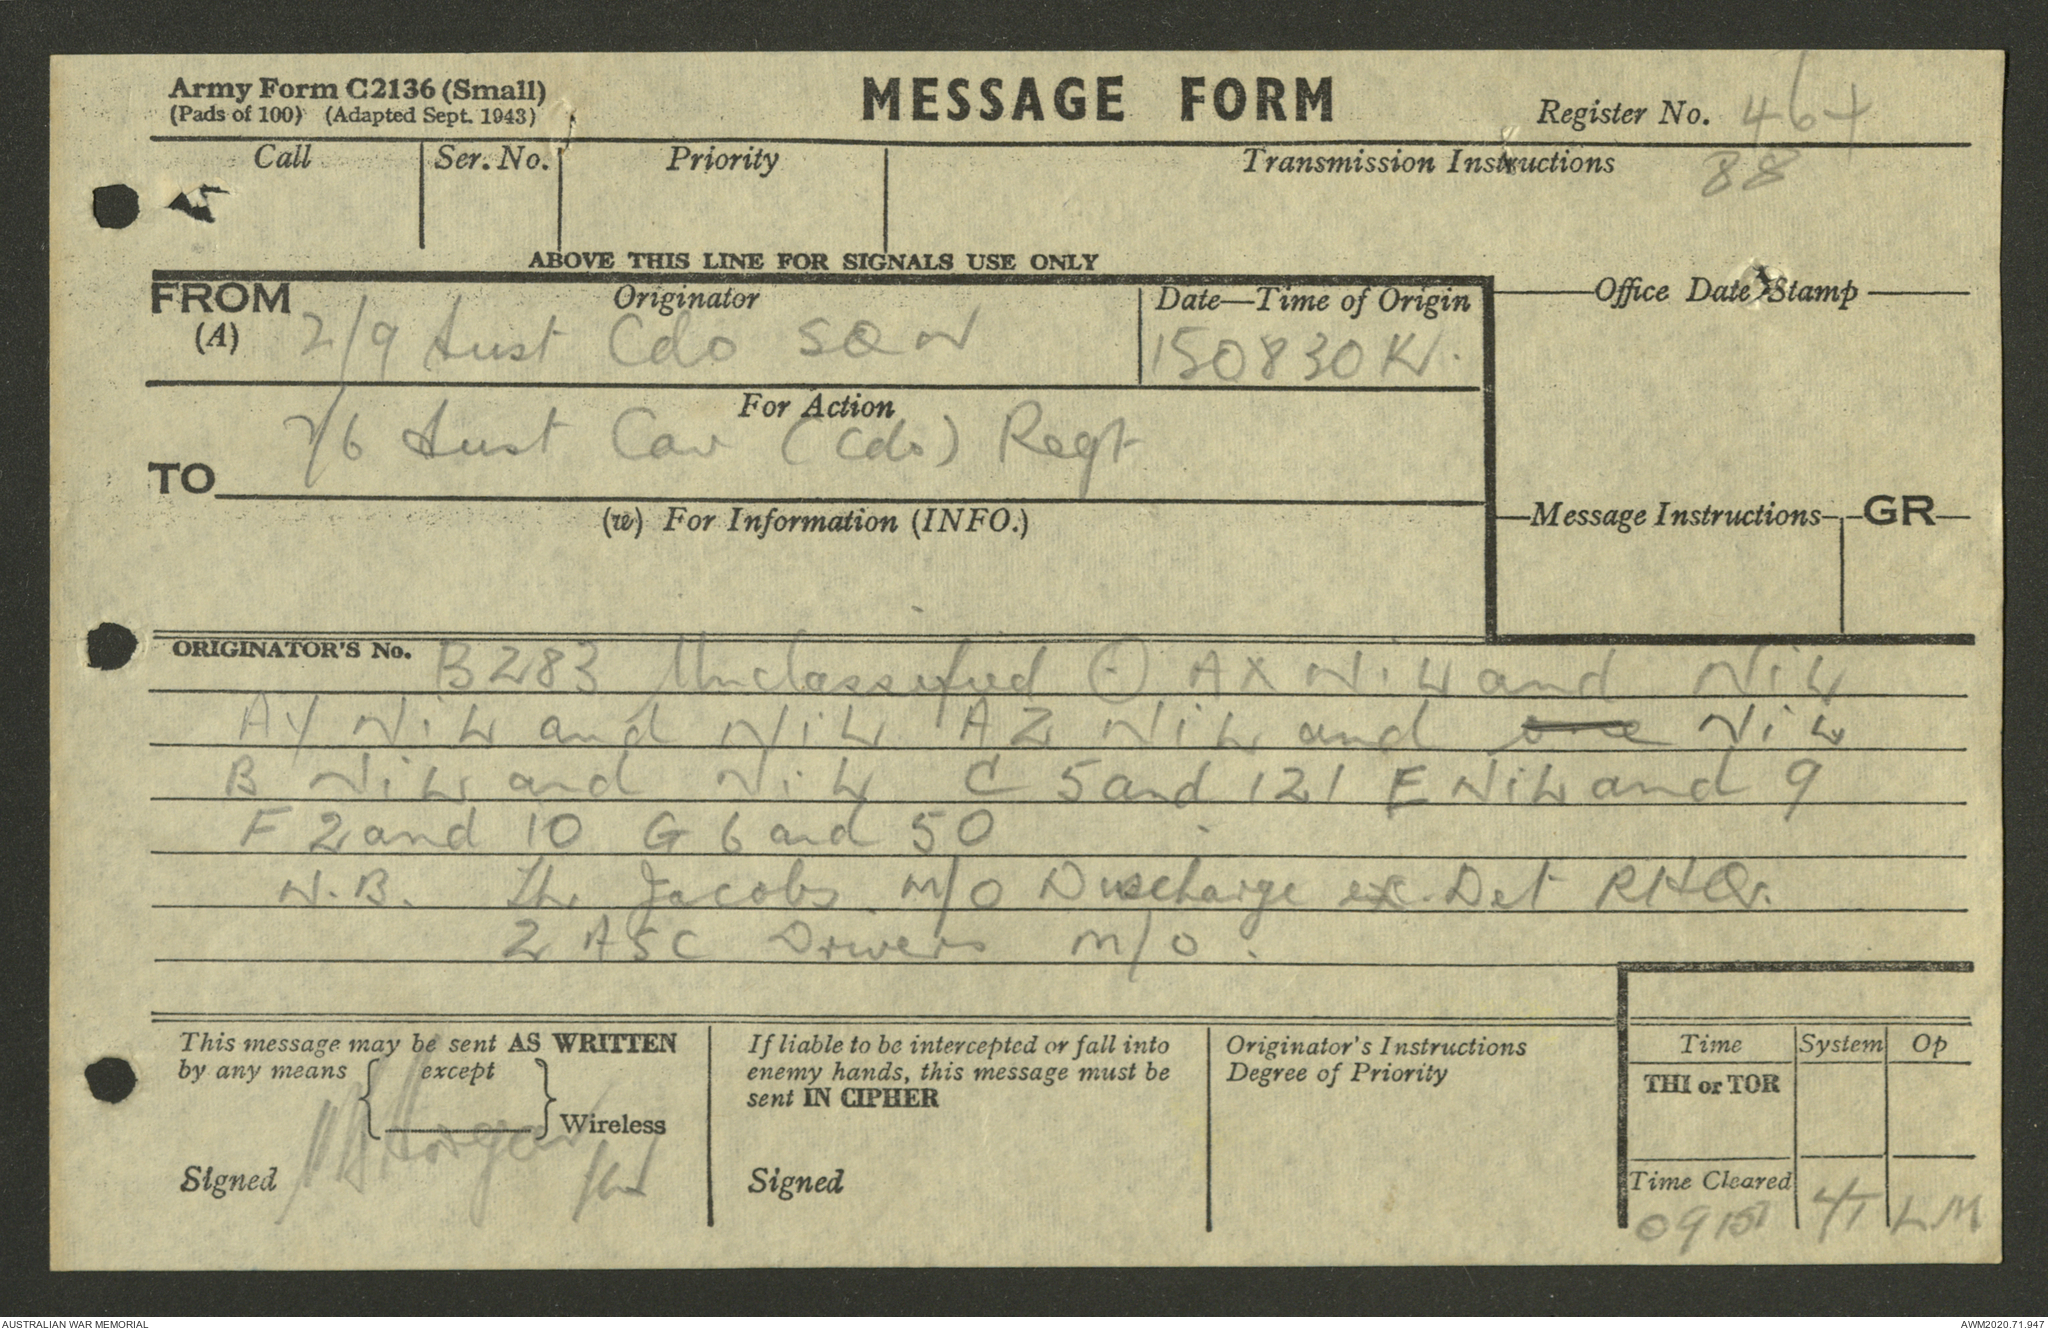 Army Form C2136 (Small)
(Pads of 100) (Adapted Sept. 1943)
MESSAGE FORM
Register No. 464
88
Call
Ser. No.
Priority
Transmission Instructions
ABOVE THIS LINE FOR SIGNALS USE ONLY
FROM
(A)
Originator
2/9 Aust Cdo SQN
Date—Time of Origin
150830K.
Office Date Stamp
For Action
TO
2/6 Aust Cav (Cdo) Regt
(w) For Information (INFO.)
Message Instructions
GR
ORIGINATOR'S No. B283 Unclassified (-) AX NiL and NiL
AY NiL and NiL AZ NiL and one NiL
B NiL and NiL C 5 and 121 E NiL and 9
F 2 and 10 G 6 and 50
N.B. Lt. Jacobs m/o Discharge ex Det RHQ.
2 ASC Drivers m/o.
This message may be sent AS WRITTEN
by any means except
Wireless
Signed
If liable to be intercepted or fall into
enemy hands, this message must be
sent IN CIPHER
Signed
Originator's Instructions
Degree of Priority
Time
System
Op
THI or TOR
Time Cleared
0915
LM
AUSTRALIAN WAR MEMORIAL
AWM2020.71.947